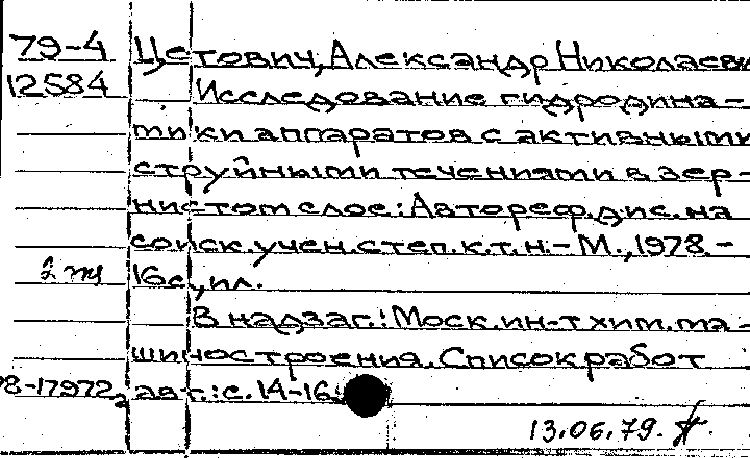 79-4 Цетович, Александр Николаеви
12584 Исследование гидродина-
мики аппаратов с активными
струйными течениями в зер-
нистом слое.: Автореф. дис. на
соиск. учен. степ. к.т.н. - М., 1978. -
16с., ил.
В надзаг.: Моск. ин-т хим. ма-
шиностроения. Список работ
8-17972 авт.: с. 14-16.
13.06.79.